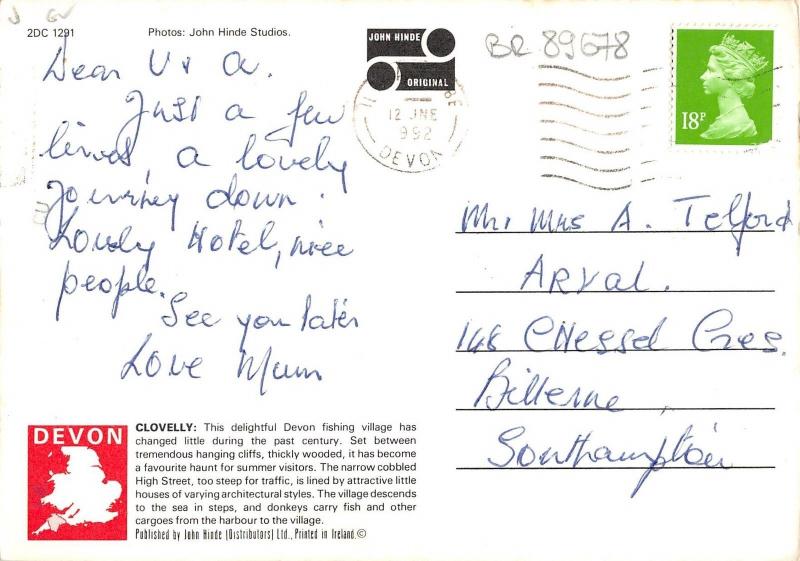 2DC 1291
Photos: John Hinde Studios.
JOHN HINDE
ORIGINAL
BR 89678
18P
12 JNE
992
DEVON
Dear V & A.
Just a few
lines, a lovely
Journey down.
Lovely Hotel, nice
people.
See you later
Love Mum
Mr Mrs A. Telford
ARVAL.
148 CHessel Cres.
Bitterne
Southampton
DEVON
CLOVELLY: This delightful Devon fishing village has
changed little during the past century. Set between
tremendous hanging cliffs, thickly wooded, it has become
a favourite haunt for summer visitors. The narrow cobbled
High Street, too steep for traffic, is lined by attractive little
houses of varying architectural styles. The village descends
to the sea in steps, and donkeys carry fish and other
cargoes from the harbour to the village.
Published by John Hinde (Distributors) Ltd., Printed in Ireland.©